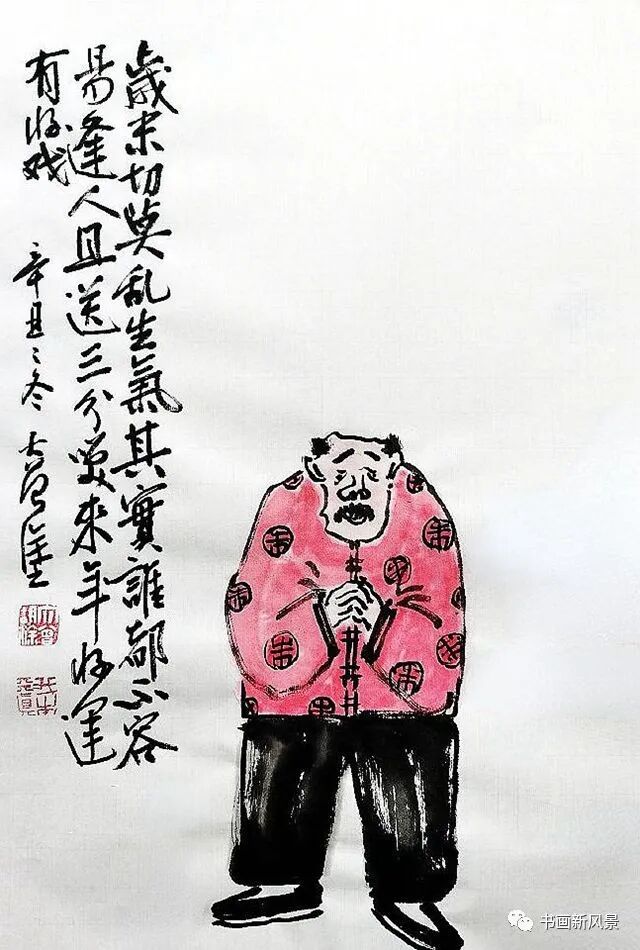 歲末切莫乱生氣其實誰都不容
易逢人且送三分笑來年好運
有好戏
辛丑之冬
书画新风景